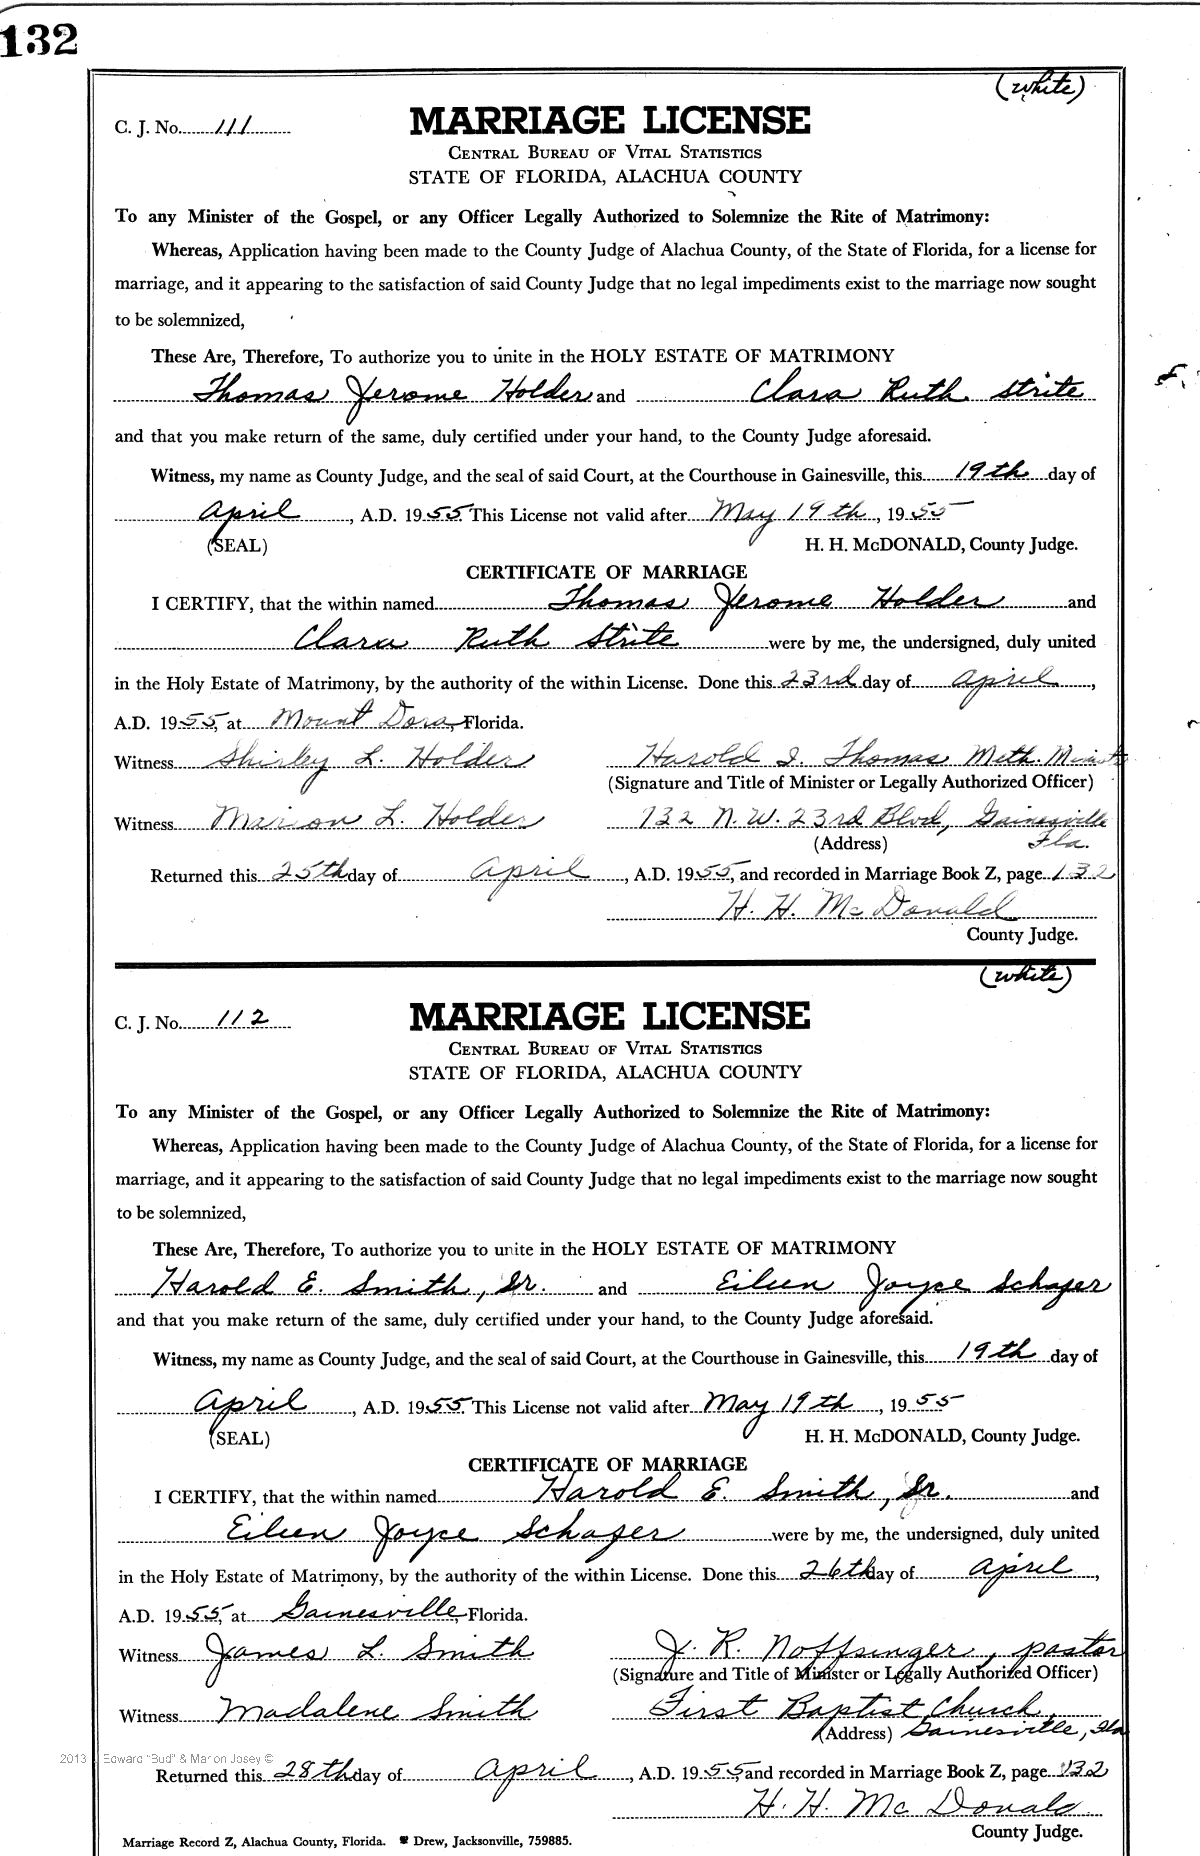 132
(white)
C. J. No. 111
MARRIAGE LICENSE
CENTRAL BUREAU OF VITAL STATISTICS
STATE OF FLORIDA, ALACHUA COUNTY
To any Minister of the Gospel, or any Officer Legally Authorized to Solemnize the Rite of Matrimony:
Whereas, Application having been made to the County Judge of Alachua County, of the State of Florida, for a license for
marriage, and it appearing to the satisfaction of said County Judge that no legal impediments exist to the marriage now sought
to be solemnized,
These Are, Therefore, To authorize you to unite in the HOLY ESTATE OF MATRIMONY
Thomas Jerome Holder and Clara Ruth Strite
and that you make return of the same, duly certified under your hand, to the County Judge aforesaid.
Witness, my name as County Judge, and the seal of said Court, at the Courthouse in Gainesville, this 19th day of
April, A.D. 1955. This License not valid after May 19th, 1955
(SEAL) H. H. McDONALD, County Judge.
CERTIFICATE OF MARRIAGE
I CERTIFY, that the within named Thomas Jerome Holder and
Clara Ruth Strite were by me, the undersigned, duly united
in the Holy Estate of Matrimony, by the authority of the within License. Done this 23rd day of April,
A.D. 1955, at Mount Dora, Florida.
Witness Shirley L. Holder Harold I. Thomas Meth. Minister
(Signature and Title of Minister or Legally Authorized Officer)
Witness Marion L. Holder 132 N.W. 23rd Blvd, Gainesville
(Address) Fla.
Returned this 25th day of April, A.D. 1955, and recorded in Marriage Book Z, page 132
H. H. McDonald
County Judge.
(white)
C. J. No. 112
MARRIAGE LICENSE
CENTRAL BUREAU OF VITAL STATISTICS
STATE OF FLORIDA, ALACHUA COUNTY
To any Minister of the Gospel, or any Officer Legally Authorized to Solemnize the Rite of Matrimony:
Whereas, Application having been made to the County Judge of Alachua County, of the State of Florida, for a license for
marriage, and it appearing to the satisfaction of said County Judge that no legal impediments exist to the marriage now sought
to be solemnized,
These Are, Therefore, To authorize you to unite in the HOLY ESTATE OF MATRIMONY
Harold E. Smith, Sr. and Eileen Joyce Schafer
and that you make return of the same, duly certified under your hand, to the County Judge aforesaid.
Witness, my name as County Judge, and the seal of said Court, at the Courthouse in Gainesville, this 19th day of
April, A.D. 1955. This License not valid after May 19th, 1955
(SEAL) H. H. McDONALD, County Judge.
CERTIFICATE OF MARRIAGE
I CERTIFY, that the within named Harold E. Smith, Sr. and
Eileen Joyce Schafer were by me, the undersigned, duly united
in the Holy Estate of Matrimony, by the authority of the within License. Done this 26th day of April,
A.D. 1955, at Gainesville, Florida.
Witness James L. Smith J. R. Noffsinger, pastor
(Signature and Title of Minister or Legally Authorized Officer)
Witness Madalene Smith First Baptist Church,
(Address) Gainesville, Fla
2013 Edward "Bud" & Marion Josey ©
Returned this 28th day of April, A.D. 1955, and recorded in Marriage Book Z, page 132
H. H. McDonald
County Judge.
Marriage Record Z, Alachua County, Florida. Drew, Jacksonville, 759885.